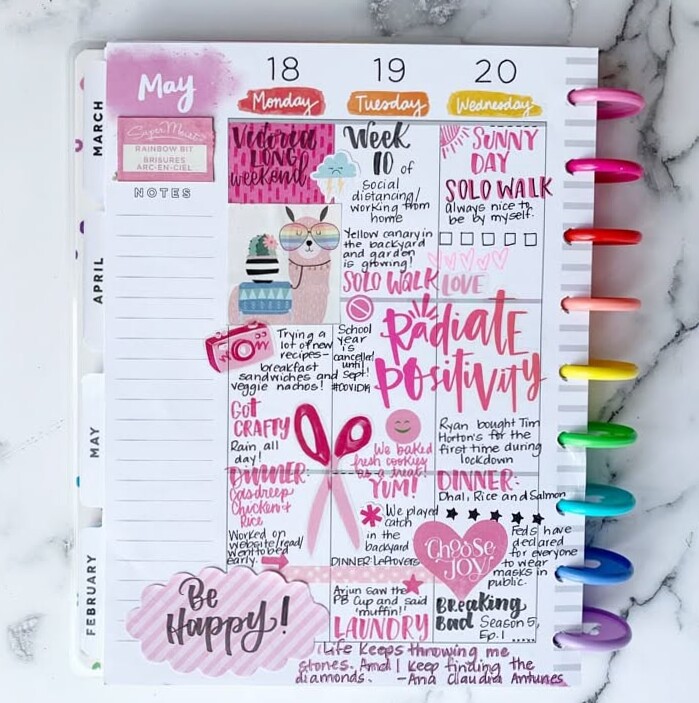 MARCH
APRIL
MAY
FEBRUARY
May
18
19
20
Monday
Tuesday
Wednesday
SuperMoist
RAINBOW BIT
BRISURES
ARC-EN-CIEL
NOTES
Victoria
LONG
weekend
Trying a
lot of new
recipes-
breakfast
sandwiches and
veggie nachos!
Got
CRAFTY
Rain all
day!
DINNER:
Gas dreep
Chicken +
Rice
Worked on
website/read/
went to bed
early.
Be
Happy!
Week
10 of
social
distancing/
working from
home
Yellow canary in
the backyard
and garden
is growing!
SOLO WALK
School
year
is
cancelled
until
Sept!
#COVID19
We baked
fresh cookies
as a treat!
YUM!
We played
catch
in the
backyard
DINNER: Leftovers
Arjun saw the
PB Cup and said
"muffin!"
LAUNDRY
SUNNY
DAY
SOLO WALK
always nice to
be by myself.
LOVE
RADIATE
POSITIVITY
Ryan bought Tim
Horton's for the
first time during
lockdown
DINNER:
Dhal, Rice and Salmon
Choose
JOY!
Feds have
declared
for everyone
to wear
masks in
public.
Breaking
Bad Season 5,
Ep. 1 .....
Life keeps throwing me
stones. And I keep finding the
diamonds. -Ana Claudia Antunes